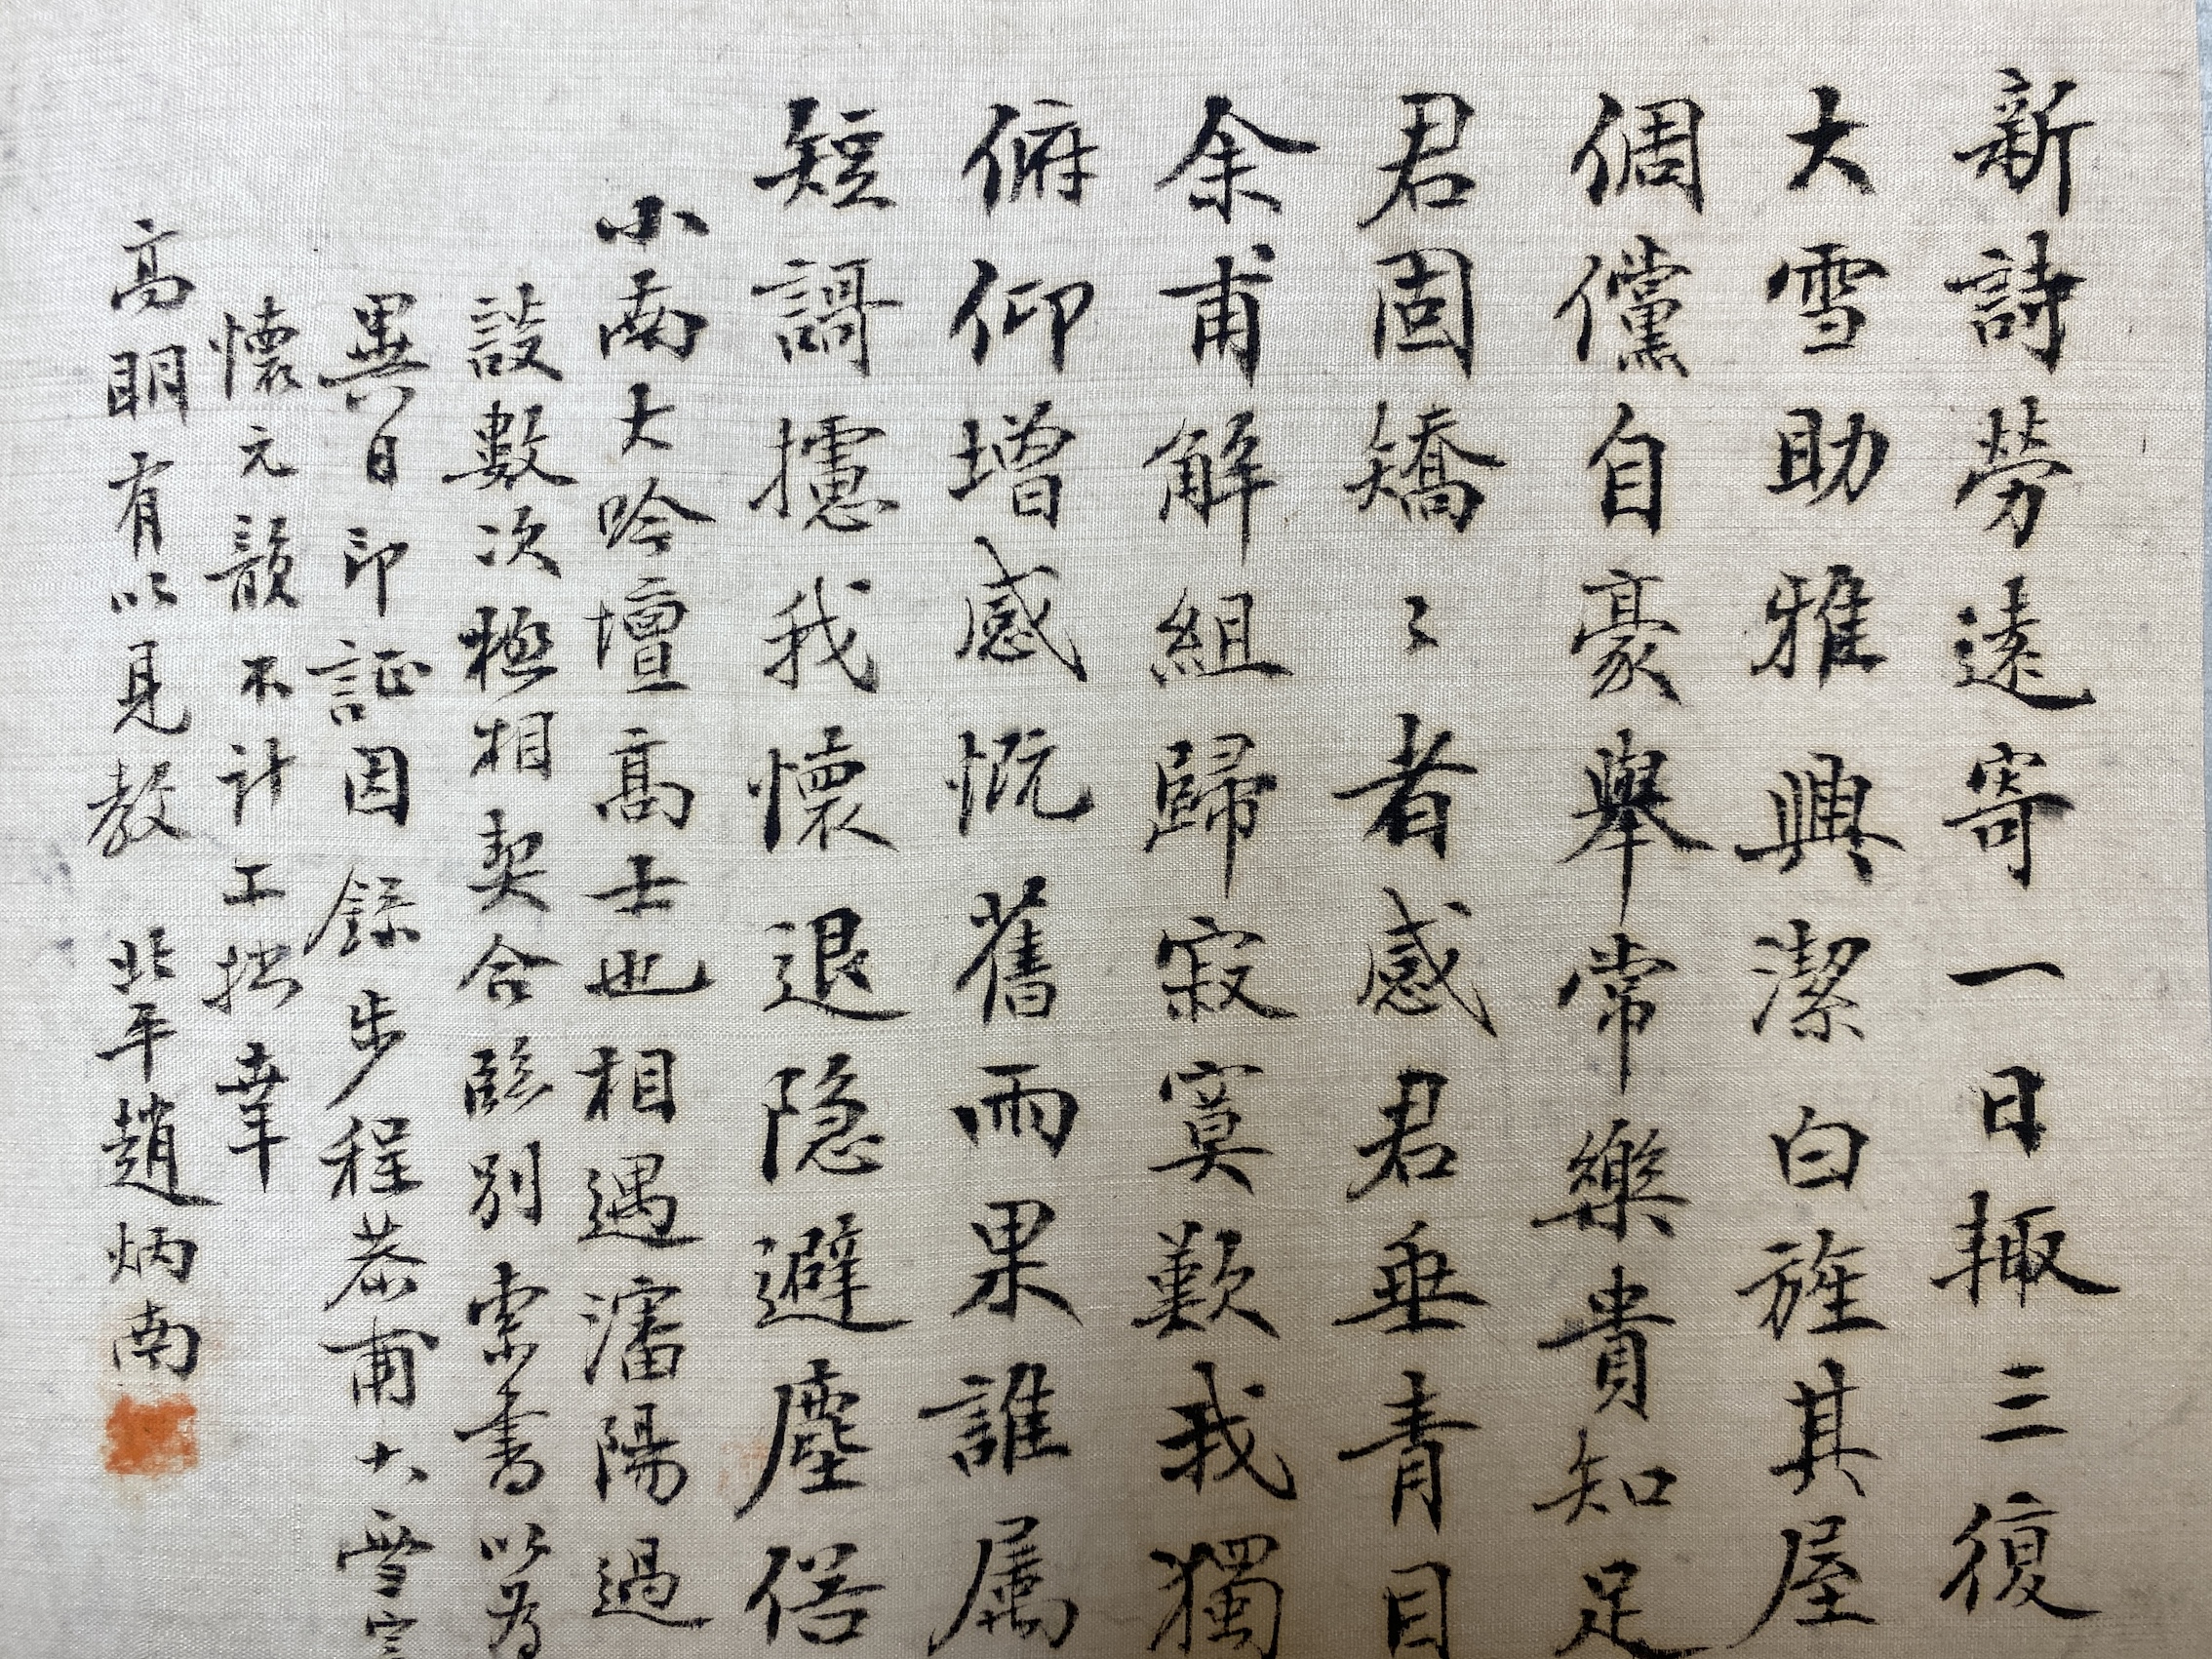 新詩勞遠寄一日輙三復
大雪助雅興潔白旌其屋
倜儻自豪舉常樂貴知足
君固矯〻者感君垂青目
余甫解組歸寂寞歎我獨
俯仰增感慨舊雨果誰属
短謌攄我懷退隐避塵俗
小南大吟壇高士也相遇瀋陽過
談數次極相契合臨别索書以為
異日印証因錄步程恭甫大雪
懷元韻不計工拙幸
高明有以見教 北平趙炳南